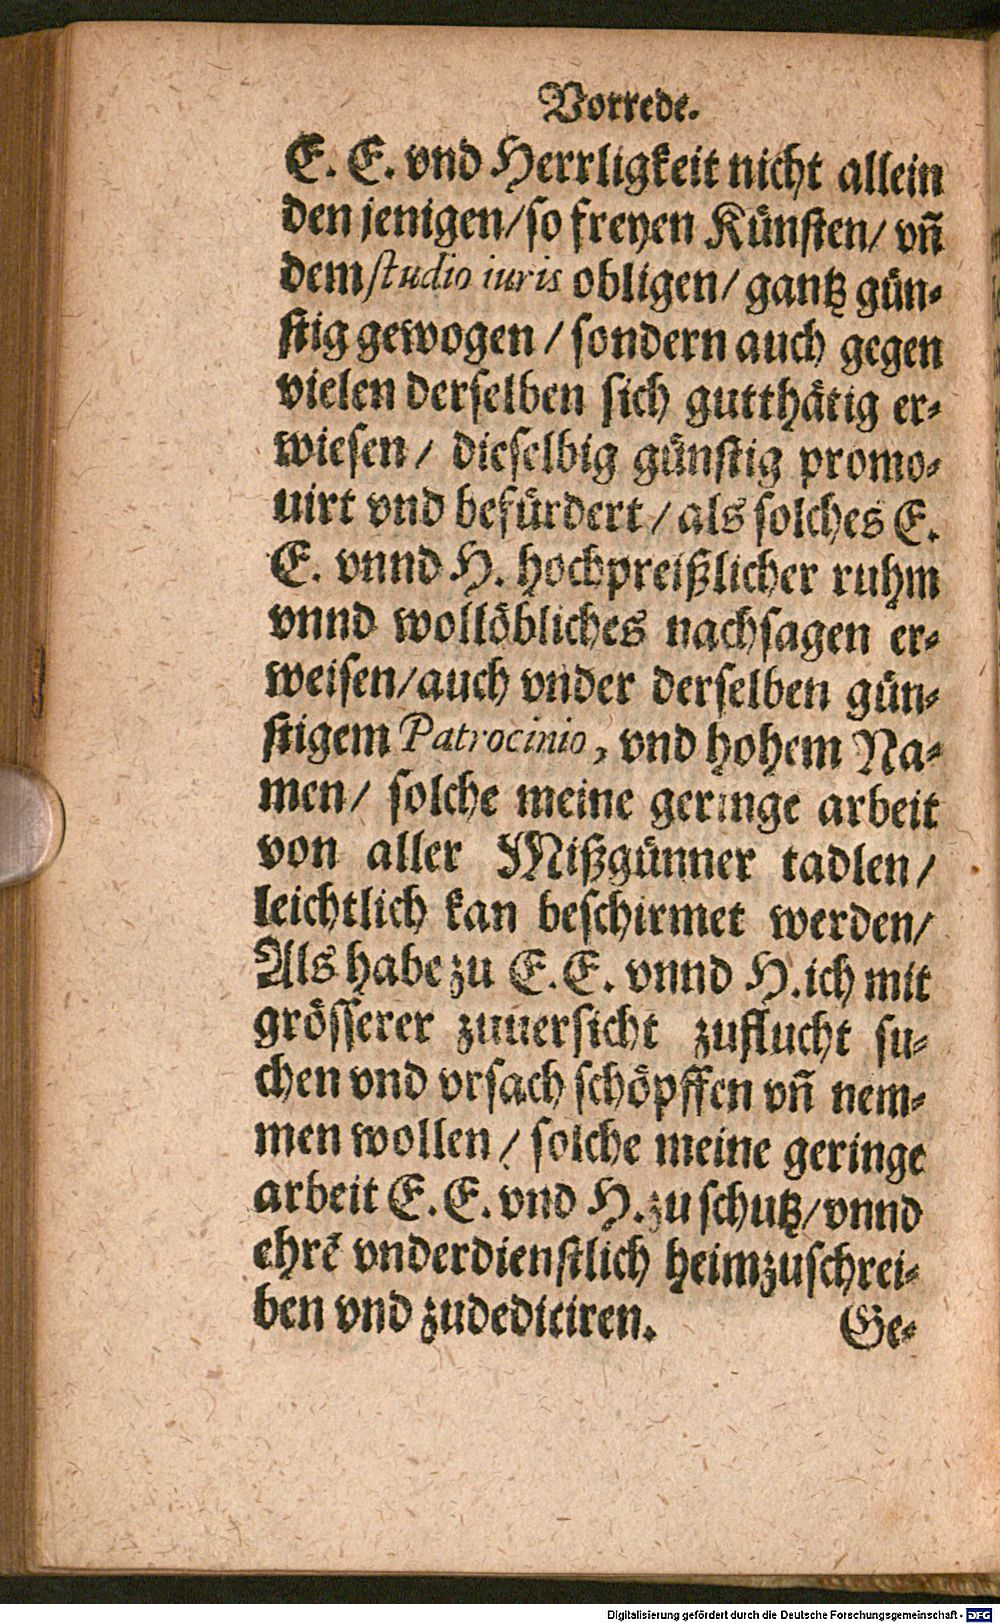 Vorrede.
E. E. vnd Herrligkeit nicht allein
den jenigen/so freyen Künsten/ vñ
dem studio iuris obligen/ gantz gün-
stig gewogen / sondern auch gegen
vielen derselben sich gutthätig er-
wiesen/ dieselbig günstig promo-
uirt vnd befürdert/als solches E.
E. vnnd H. hochpreißlicher ruhm
vnnd wollöbliches nachsagen er-
weisen/auch vnder derselben gün-
stigem Patrocinio, vnd hohem Na-
men/ solche meine geringe arbeit
von aller Mißgünner tadlen/
leichtlich kan beschirmet werden/
Als habe zu E.E. vnnd H.ich mit
grösserer zuuersicht zuflucht su-
chen vnd vrsach schöpffen vñ nem-
men wollen/ solche meine geringe
arbeit E.E. vnd H.zu schutz/vnnd
ehrẽ vnderdienstlich heimzuschrei-
ben vnd zudediciren.
Ge-
Digitalisierung gefördert durch die Deutsche Forschungsgemeinschaft - DFG